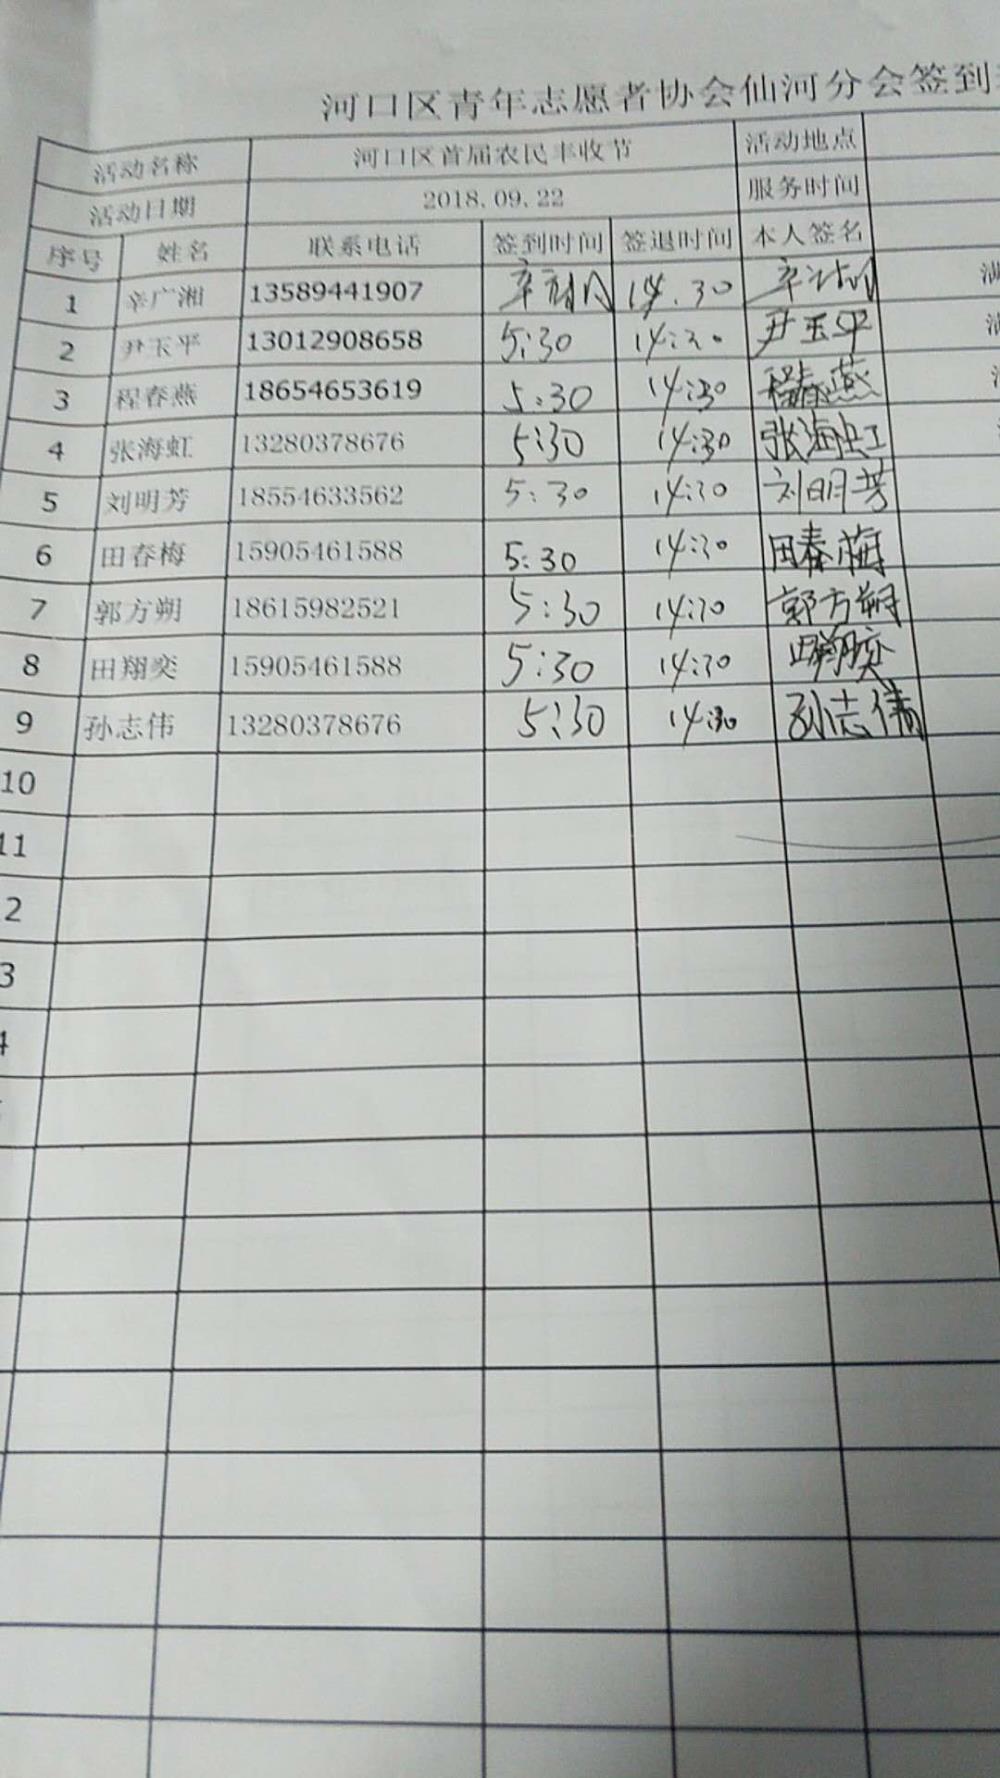 河口区青年志愿者协会仙河分会签到
活动名称 河口区首届农民丰收节 活动地点
活动日期 2018.09.22 服务时间
序号 姓名 联系电话 签到时间 签退时间 本人签名
1 辛广湘 13589441907 14.30
2 尹玉平 13012908658 5:30 14:30 尹玉平
3 程春燕 18654653619 5:30 14:30 程春燕
4 张海虹 13280378676 5:30 14:30 张海虹
5 刘明芳 18554633562 5:30 14:30 刘明芳
6 田春梅 15905461588 5:30 14:30 田春梅
7 郭方朔 18615982521 5:30 14:30 郭方朔
8 田翔奕 15905461588 5:30 14:30 田翔奕
9 孙志伟 13280378676 5:30 14:30 孙志伟
10
11
2
3
4